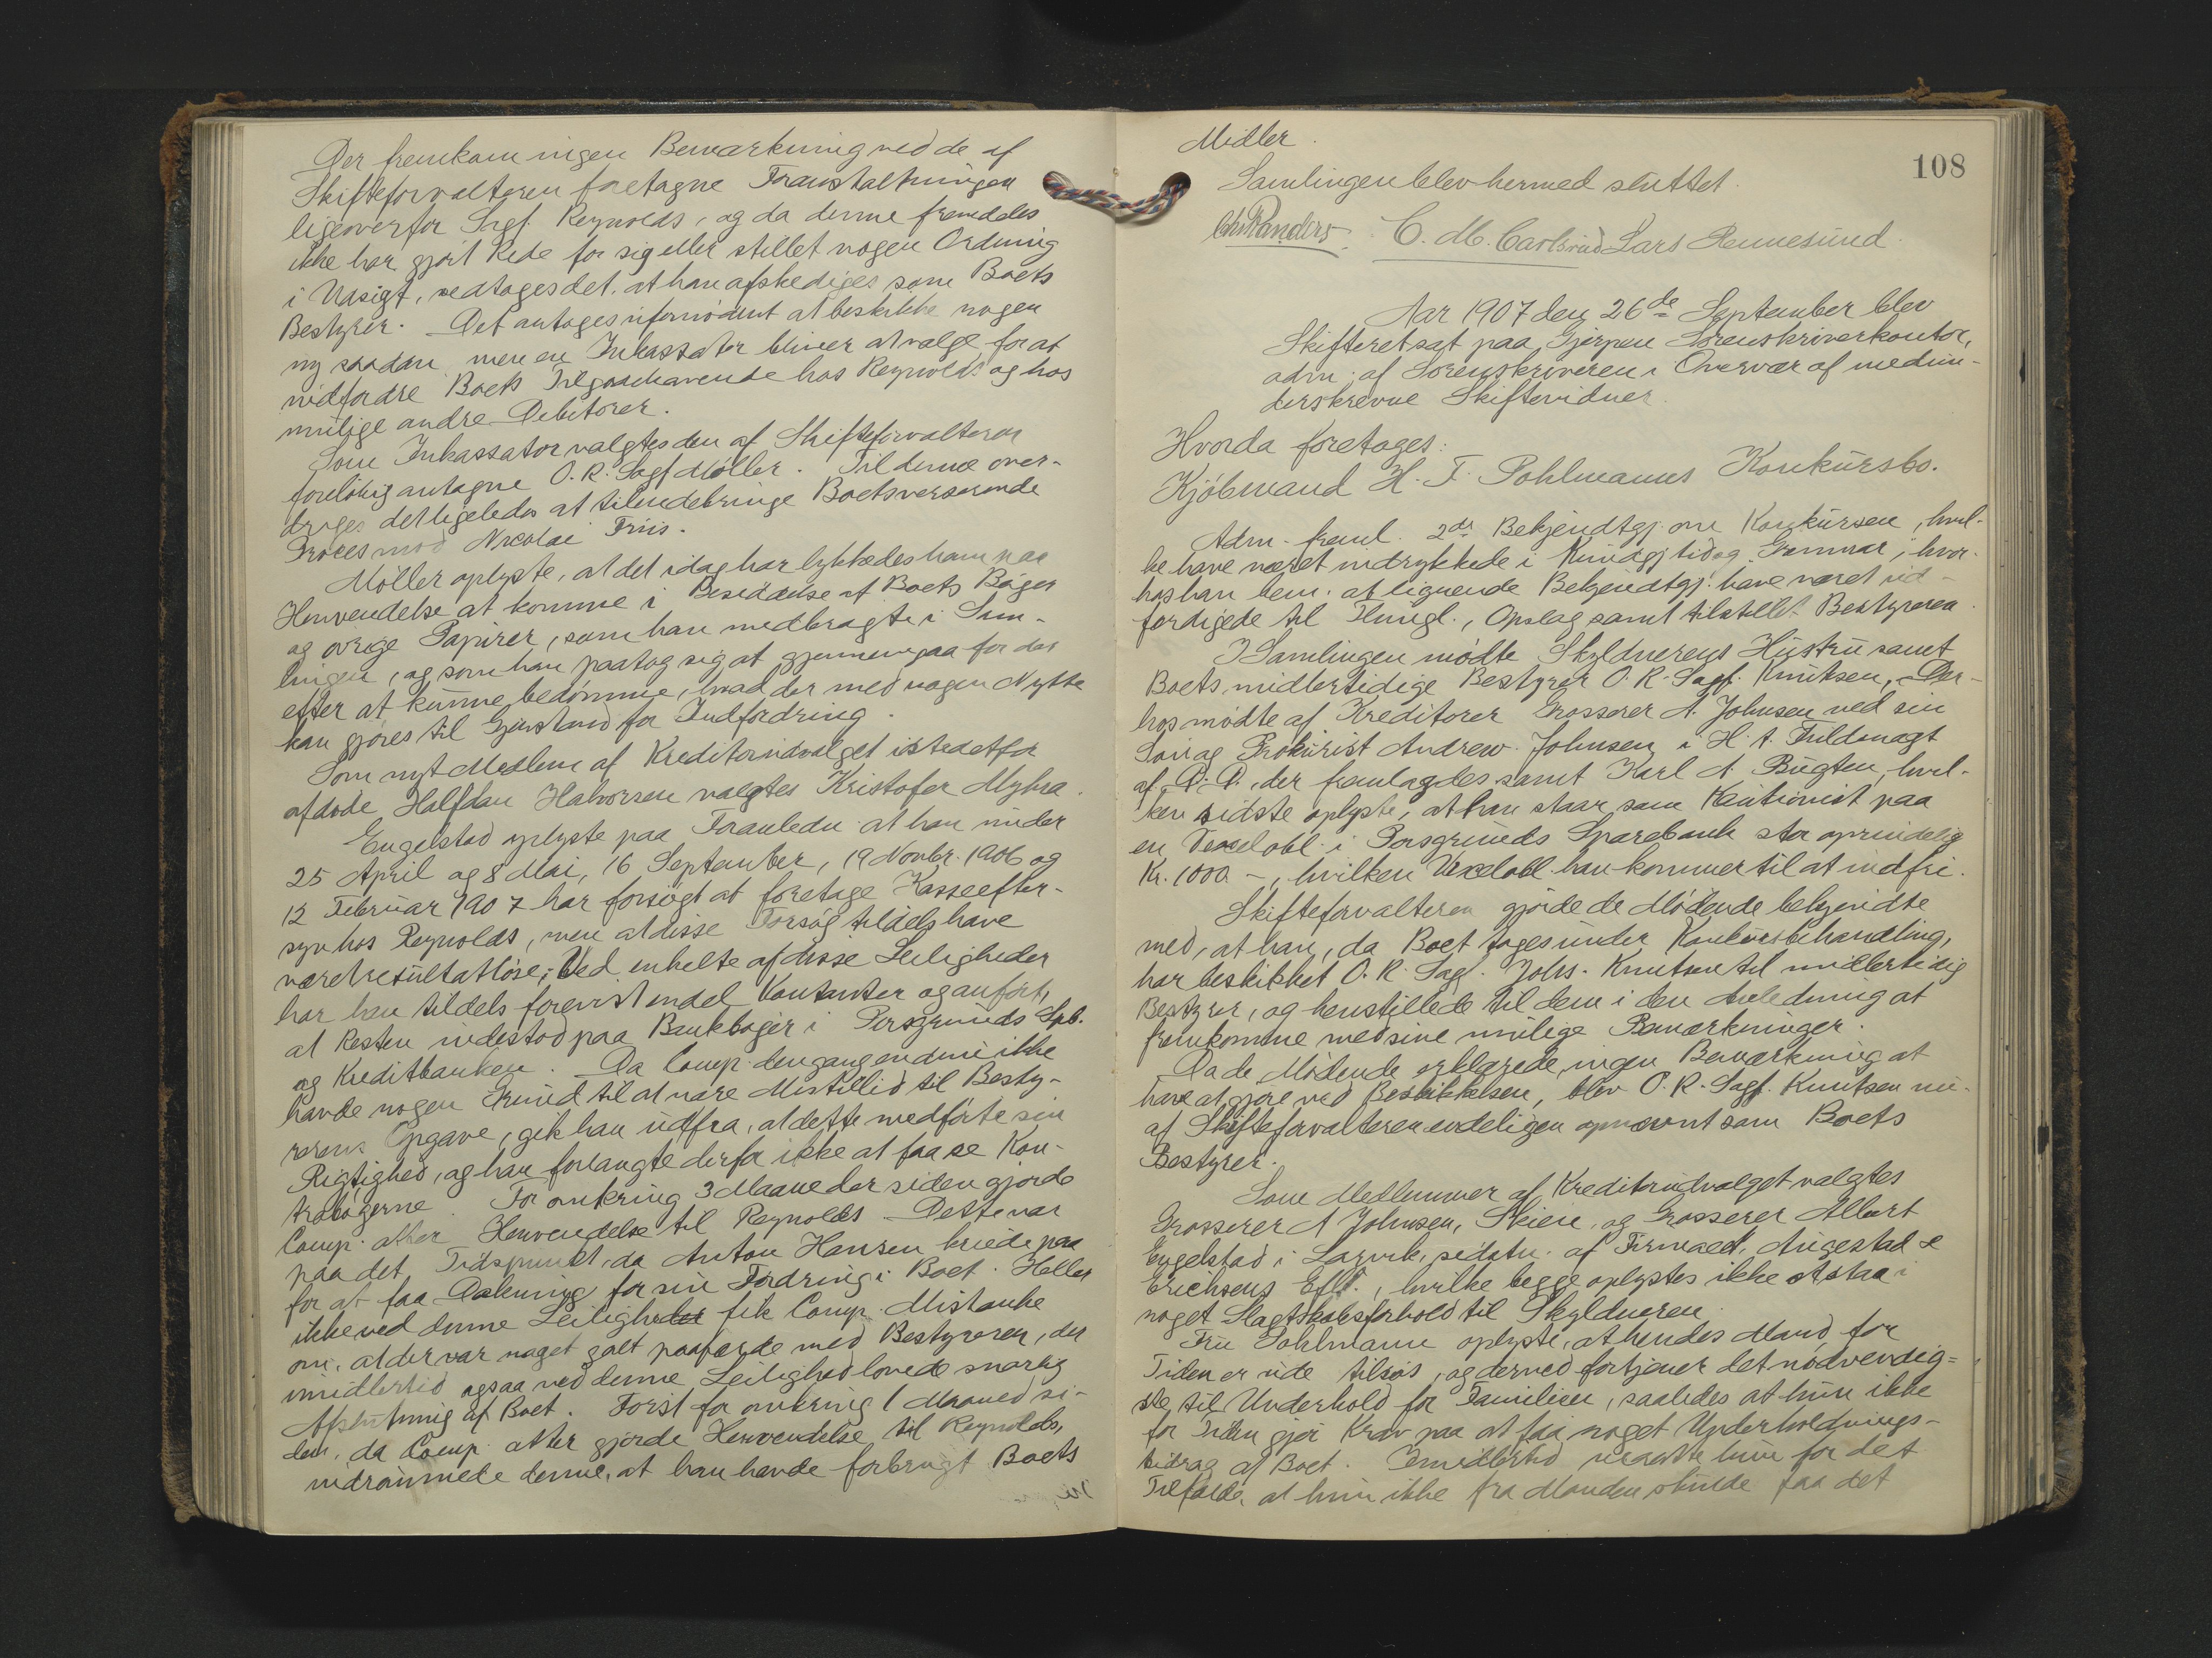 Der fremkom ingen Bemærkning ved de af
Skifteforvalteren foretagne Foranstaltningen
ligeoverfor Sagf. Reynolds, og da denne fremdeles
ikke har gjort Rede for sig eller stillet nogen Ordning
i Udsigt, vedtoges det, at han afskediges som Boets
Bestyrer. Det antoges ufornødent at beskikke nogen
ny saadan, men en Inkassator bliver at valge for at
indfordre Boets Tilgodehavende hos Reynolds og hos
mulige andre Debitorer.
Som Inkassator valgtes den af Skifteforvalteren
foreløbig antagne O. R. Sagf Møller. Til denne over-
droges det ligeledes at tilendebringe Boets verserende
Proces mod Nicolai Friis.
Møller oplyste, at det idag har lykkedes ham paa
Henvendelse at komme i Besiddelse af Boets Bøger
og øvrige Papirer, som han medbragte i Sam-
lingen, og som han paatog sig at gjennemgaa for der
efter at kunne bedømme, hvad der med nogen Nytte
kan gjøres til Gjenstand for Indfordring.
Som nyt Medlem af Kreditorudvalget istedetfor
afdøde Halfdan Halvorsen valgtes Kristofer Myhra.
Engelstad oplyste paa Foranledn. at han under
25 April og 8 Mai, 16 September, 19 Novbr. 1906 og
12 Februar 1907 har forsøgt at foretage Kasseefter-
syn hos Reynolds, men at disse Forsøg tildels have
været resultatløse; Ved enkelte af disse Leiligheder
har han tildels forevist endel Kontanter og anført,
at Resten indestod paa Bankbøger i Porsgrunds Spb.
og Kreditbanken. Da Comp. dengang endnu ikke
havde nogen Grund til at nære Mistillid til Besty-
rerens Opgave, gik han udfra, at dette medførte sin
Rigtighed, og han forlangte derfor ikke at faa se Kon-
trabøgerne. For omkring 3 Maaneder siden gjorde
Comp. atter Henvendelse til Reynolds. Dette var
paa det Tidspunkt, da Anton Hansen krævede paa
for at faa Dækning for sin Fordring i Boet. Heller
ikke ved denne Leilighed fik Comp. Mistanke
om, at der var noget galt paafærde med Bestyreren, der
imidlertid ogsaa ved denne Leilighed lovede snarlig
Afslutning af Boet. Først for omkring 1 Maaned si-
den, da Comp. atter gjorde Henvendelse til Reynolds,
indrømmede denne, at han havde forbrugt Boets
Midler.
108
Samlingen blev hermed sluttet.
Chr Randers. C. M. Carlsrud Lars Rennesund.
Aar 1907 den 26de September blev
Skifteret sat paa Gjerpen Sorenskriverkontor,
adm. af Sorenskriveren i Overvær af medun-
derskrevne Skiftevidner.
Hvorda foretages:
Kjøbmand H. F. Pohlmanns Konkursbo.
Adm. freml. 2de Bekjendtgj. om Konkursen, hvil-
ke have været indrykkede i Kundgj tid og Grenmar, hvor-
hos han bem. at lignende Bekjendtgj. have været ud-
færdigede til Thingl., Opslag samt tilstillet Bestyreren.
I Samlingen mødte Skyldnerens Hustru samt
Boets midlertidige Bestyrer O. R. Sagf. Knutsen. Der-
hos mødte af Kreditorer Grosserer A. Johnsen ved sin
Søn og Prokurist Andrew Johnsen i H. t. Fuldmagt
af D. D., der fremlagdes samt Karl A. Bugten, hvil-
ken sidste oplyste, at han staar som Kautionist paa
en Vexelobl. i Porsgrunds Sparebank stor oprindelig
Kr. 1000 –, hvilken Vexelobl. han kommer til at indfri.
Skifteforvalteren gjorde de Mødende bekjendte
med, at han, da Boet toges under Konkursbehandling,
har beskikket O. R. Sagf. Johs. Knutsen til midlertidig
Bestyrer, og henstillede til dem i den Anledning at
fremkomme med sine mulige Bemærkninger.
Da de Mødende erklærede, ingen Bemærkning at
have at gjøre ved Beskikkelsen, blev O. R. Sagf. Knutsen nu
af Skifteforvalteren endeligen opnævnt som Boets
Bestyrer.
Som Medlemmer af Kreditorudvalget valgtes
Grosserer A Johnsen, Skien, og Grosserer Albert
Engelstad i Larvik, sidstn. af Firmaet Augestad &
Erichsens Eftf., hvilke begge oplystes ikke at staa i
noget Slægtskabsforhold til Skyldneren.
Fru Pohlmann oplyste, at hendes Mand for
Tiden er ude tilsøs, og derved fortjener det nødvendig=
ste til Underhold for Familien, saaledes at hun ikke
for Tiden gjør Krav paa at faa noget Underholdnings-
bidrag af Boet. Imidlertid maatte hun for det
Tilfælde, at hun ikke fra Manden skulde faa det